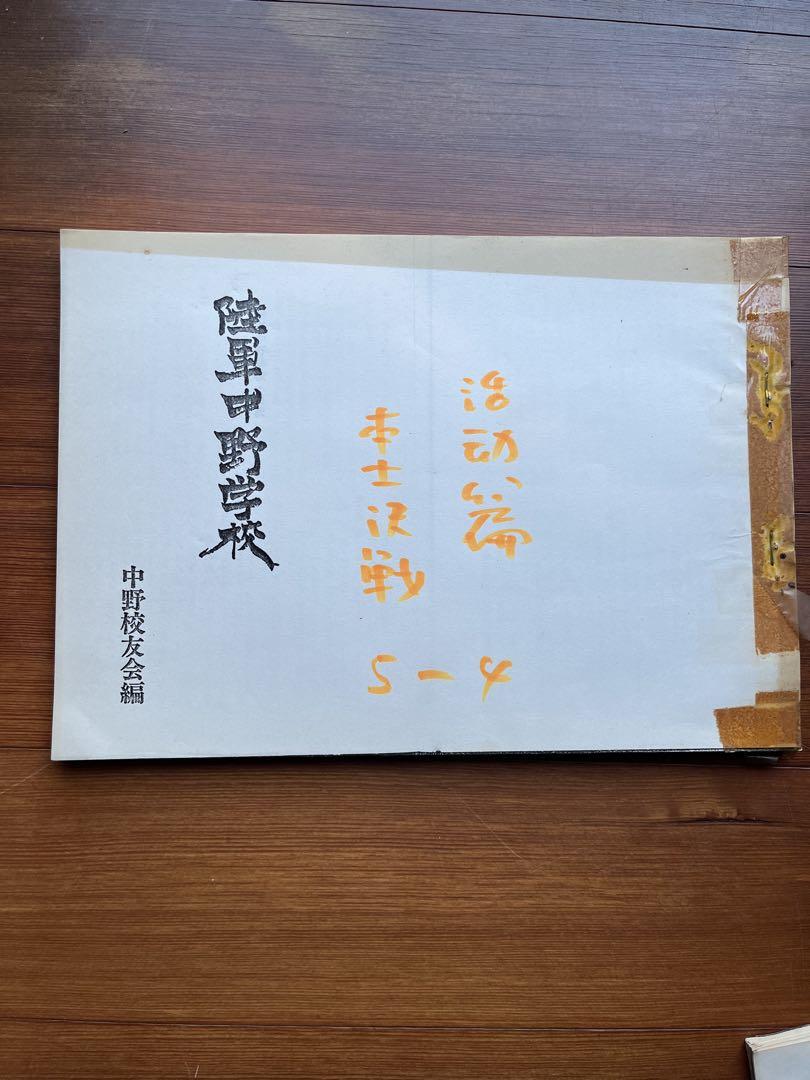 活动篇
本土決戦
5-4
陸軍中野学校
中野校友会編